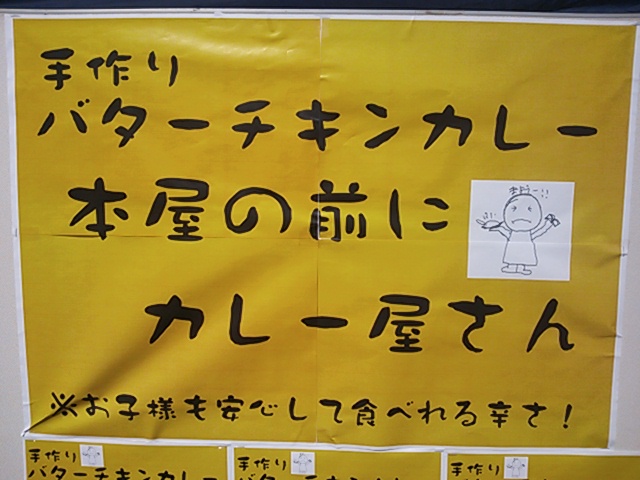 手作り
バターチキンカレー
本屋の前に
カレー屋さん
※お子様も安心して食べれる辛さ!
手作り
バターチキンカレー
手作り
手作り